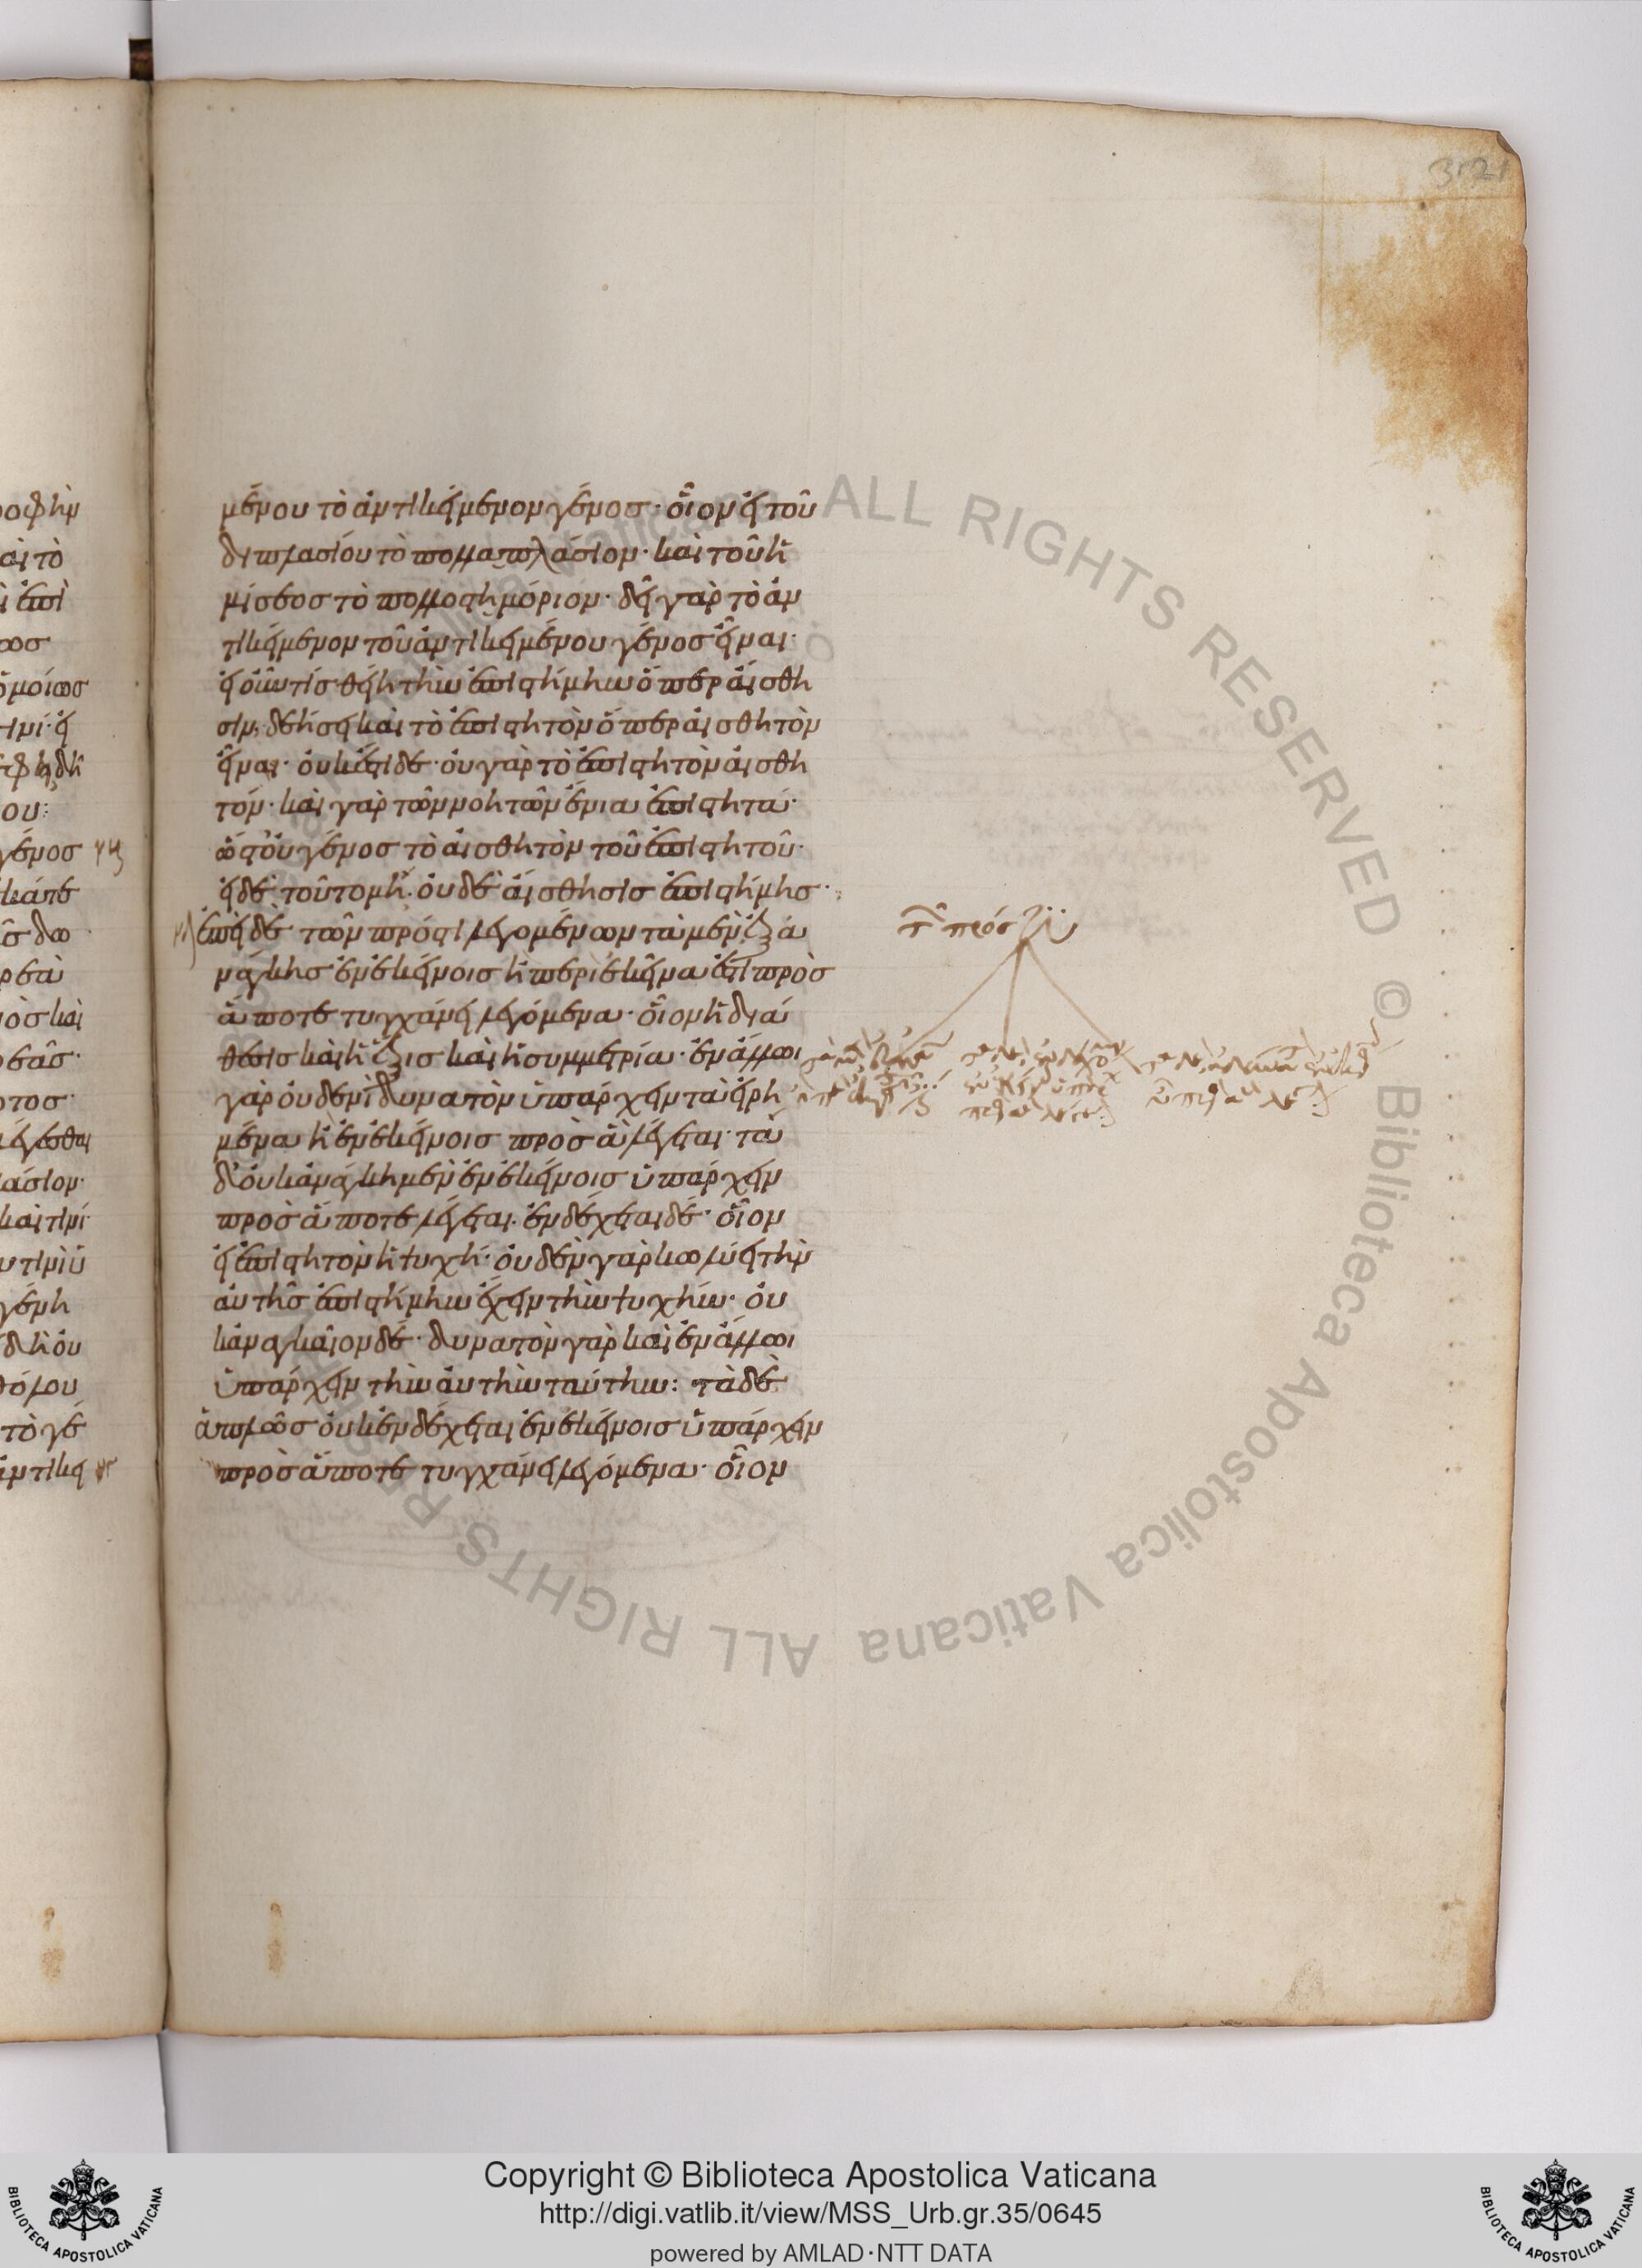 οιφὴν
αὶ τὸ
ὶ ἐπὶ
ως
ὁμοίως
τινί· εἰ
ου:
γένος
κἀπε
ρεὰ
ὸς καὶ
ρεᾶς·
οτος·
λέγεσθαι
άσιον·
καὶ τινί·
υτινὶ ὑ
γένη
δὴ οὐ
θόλου
τὸ γέ
ἀντικει
3121
μένου τὸ ἀντικείμενον γένος· οἷον εἰ τοῦ
διπλασίου τὸ πολλαπλάσιον· καὶ τοῦ ἡ
μίσεος τὸ πολλοστημόριον· δεῖ γὰρ τὸ ἀν
τικείμενον τοῦ ἀντικειμένου γένος εἶναι·
εἰ οὖν τίς θείη τὴν ἐπιστήμην ὅπερ αἴσθη
σιν, δεήσει καὶ τὸ ἐπιστητὸν ὅπερ αἰσθητὸν
εἶναι· οὐκ ἔστι δέ· οὐ γὰρ τὸ ἐπιστητὸν αἰσθη
τόν· καὶ γὰρ τῶν νοητῶν ἔνια ἐπιστητά·
ὥστ' οὐ γένος τὸ αἰσθητὸν τοῦ ἐπιστητοῦ·
εἰ δὲ τοῦτο μὴ· οὐδὲ αἴσθησις ἐπιστήμης·
ἐπεὶ δὲ τῶν πρός τι λεγομένων τὰ μὲν ἐξ ἀ
νάγκης ἐν ἐκείνοις ἢ περὶ ἐκεῖνα ἐστὶ πρὸς
ἅ ποτε τυγχάνει λεγόμενα· οἷον ἡ διά
θεσις καὶ ἡ ἕξις καὶ ἡ συμμετρία· ἐν ἄλλωι
γὰρ οὐδενὶ δυνατὸν ὑπάρχειν τὰ εἰρη
μένα ἢ ἐν ἐκείνοις πρὸς ἃ λέγεται· τὰ
δ' οὐκ ἀνάγκη μὲν ἐν ἐκείνοις ὑπάρχειν
πρὸς ἅ ποτε λέγεται· ἐνδέχεται δέ· οἷον
εἰ ἐπιστητὸν ἡ ψυχή· οὐδὲν γὰρ κωλύει τὴν
αὑτῆς ἐπιστήμην ἔχειν τὴν ψυχήν· οὐ
κ ἀναγκαῖον δέ· δυνατὸν γὰρ καὶ ἐν ἄλλωι
ὑπάρχειν τὴν αὐτὴν ταύτην: τὰ δὲ
ἁπλῶς οὐκ ἐνδέχεται ἐν ἐκείνοις ὑπάρχειν
πρὸς ἅ ποτε τυγχάνει λεγόμενα· οἷον
πρός
Copyright © Biblioteca Apostolica Vaticana
http://digi.vatlib.it/view/MSS_Urb.gr.35/0645
powered by AMLAD·NTT DATA
BIBLIOTECA APOSTOLICA VATICANA
BIBLIOTECA APOSTOLICA VATICANA
ALL RIGHTS RESERVED © Biblioteca Apostolica Vaticana ALL RIGHTS